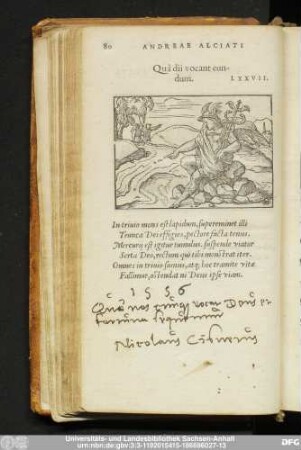 80 ANDREAE ALCIATI
Quà dii vocant eundum. LXXVII.
In trivio mons est lapidum, supereminet illi
Trunca Dei effigies, pectore facta tenus.
Mercurij est igitur tumulus, suspende viator
Serta Deo, rectum qui tibi monstrat iter.
Omnes in trivio sumus, atq; hoc tramite vitæ
Fallimur, ostendat ni Deus ipse viam.
1556
Deus et
Nicolaus
Universitäts- und Landesbibliothek Sachsen-Anhalt
urn:nbn:de:gbv:3:3-1192015415-186696027-13
DFG